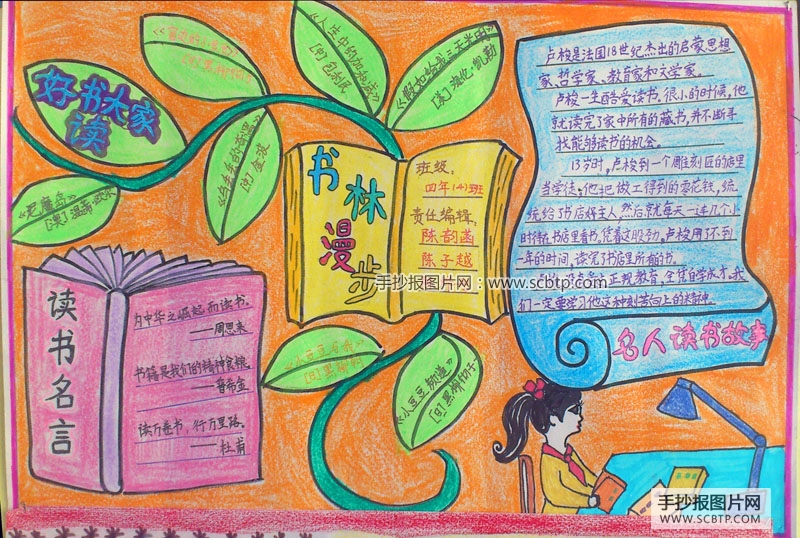 好书大家
读
《人生中的加减法》
《假如给我三天光明》
[美]海伦·凯勒
《乌丢丢的奇遇》
[中]金波
书林漫步
班级:
四年(4)班
责任编辑:
陈韵菡
陈子越
读书名言
为中华之崛起而读书。
——周恩来
书籍是我们的精神食粮。
——普希金
读万卷书,行万里路。
——杜甫
《小豆豆与我》
[日]黑柳朝
《小豆豆频道》
[日]黑柳彻子
卢梭是法国18世纪杰出的启蒙思想
家、哲学家、教育家和文学家。
卢梭一生酷爱读书。很小的时候,他
就读完了家中所有的藏书,并不断寻
找能够读书的机会。
13岁时,卢梭到一个雕刻匠的店里
当学徒,他把做工得到的零花钱,统
统给了书店得主人,然后就每天一连几个小
时待在书店里看书。凭着这股劲,卢梭用了不到
一年的时间,读完了书店里所有的书。
正规教育,全凭自学成才,我
们一定要学习他这种刻苦向上的精神
名人读书故事
手抄报图片网:www.scbtp.com
手抄报图片网
WWW.SCBTP.COM